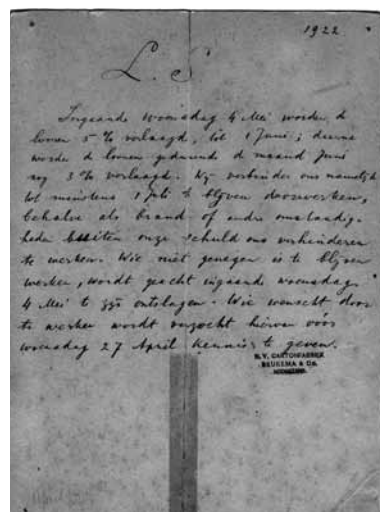 1922
L. S
Ingaande woensdag 4 Mei worden de
loonen 5 % verlaagd, tot 1 Juni; daarna
worden de loonen gedurende de maand Juni
nog 3 % verlaagd. Wij verbinden ons namelijk
tot minstens 1 Juli te blijven doorwerken,
behalve als brand of andre omstandig-
heden buiten onze schuld ons verhinderen
te werken. Wie niet genegen is te blijven
werken, wordt geacht ingaande woensdag
4 Mei te zijn ontslagen. Wie wenscht door
te werken wordt verzocht hiervan vóór
woensdag 27 April kennis te geven.
N.V. CARTONFABRIEK
BEUKEMA & Co.